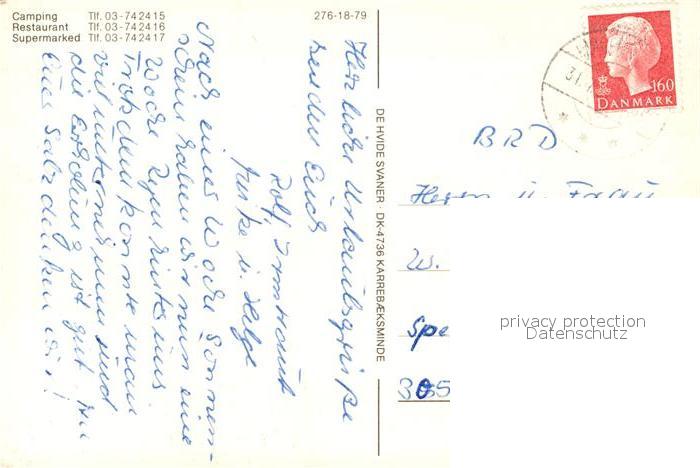 Camping Tlf. 03-742415
Restaurant Tlf. 03-742416
Supermarked Tlf. 03-742417
276-18-79
Herzliche Urlaubsgrüße
senden Euch
Rolf,
Imke u. Helge
Nach einer Woche Sonnen-
schein haben wir nun eine
Woche Regen hinter uns
Trotzdem konnte man
viel unternehmen und
die Erholung ist gut. An
Euer Salz denken wir!
DE HVIDE SVANER · DK-4736 KARREBÆKSMINDE
160
DANMARK
BRD
Herrn u. Frau
W.
Spe
305
privacy protection
Datenschutz